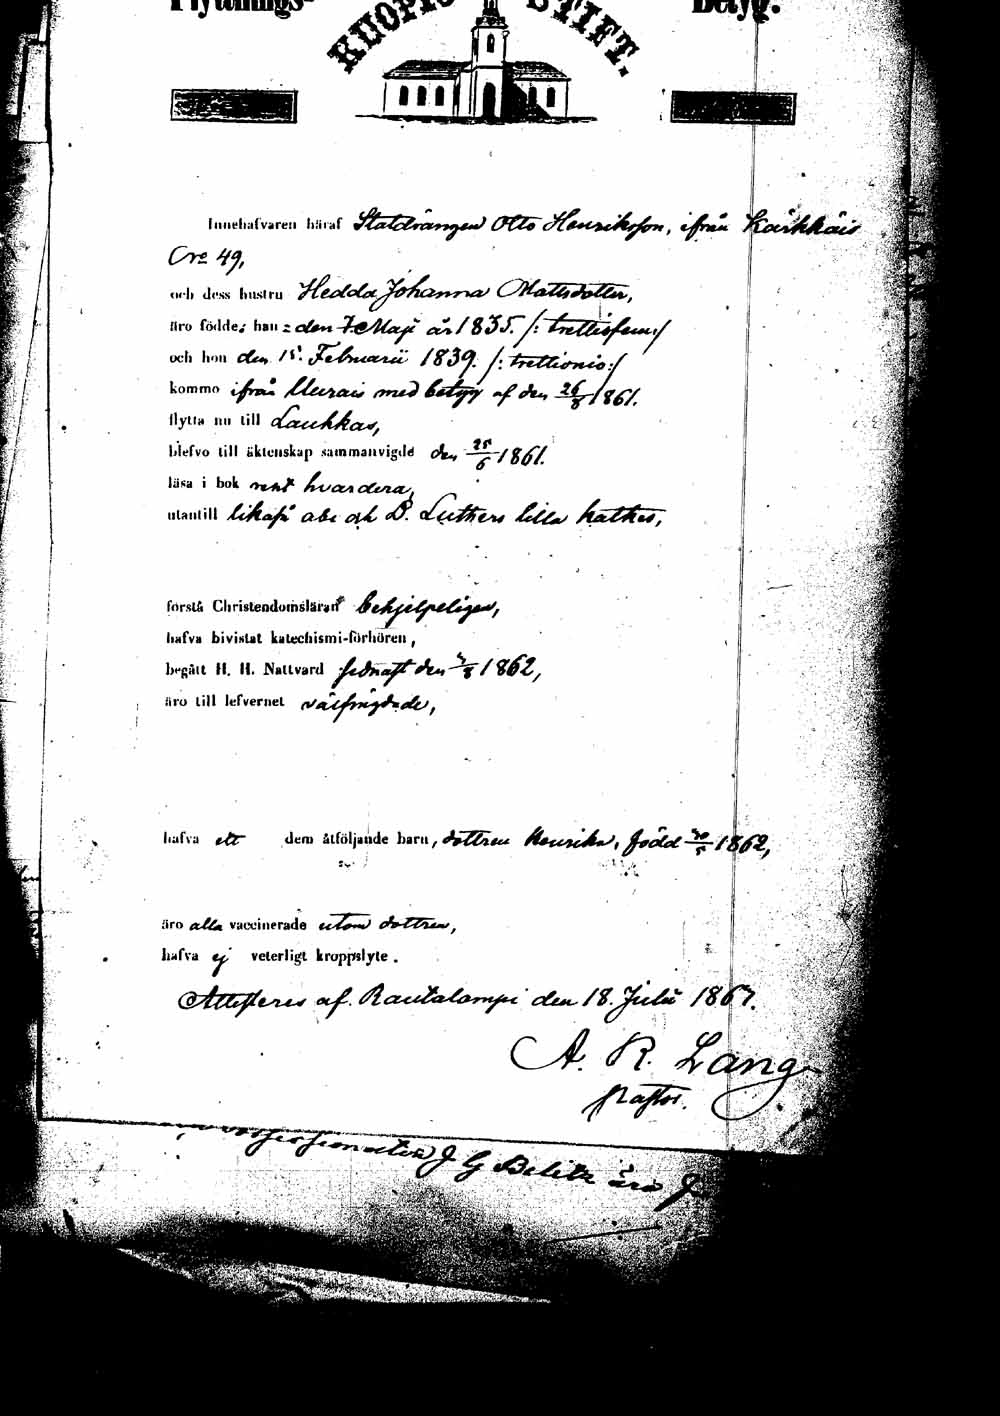 Flyttnings- Betyg.
KUOPIO STIFT.
Innehafvaren häraf Statdrängen Otto Henriksson, ifrån Kärkkäis
N:o 49,
och dess hustru Hedda Johanna Mattsdotter,
äro födde; han: den 7. Maji år 1835. /: trettiofem:/
och hon den 15. Februarii 1839. /: trettionio:/
kommo ifrån med betyg af den 26/8 1861.
flytta nu till Laukkas,
blefvo till äktenskap sammanvigde den 25/6 1861.
läsa i bok rent hvardera,
utantill likaså abc och D. Luthers lilla kathes,
förstå Christendomsläran behjelpeligen,
hafva bivistat katechismi-förhören,
begått H. H. Nattvard sednast den 1862,
äro till lefvernet välfrägdade,
hafva ett dem åtföljande barn, dottren Henrika, född 1862,
äro alla vaccinerade utom dottren,
hafva ej veterligt kroppslyte.
Attesteras af. Rautalampi den 18. Julii
A. R. Lang
Pastor.
J G Belitz äro